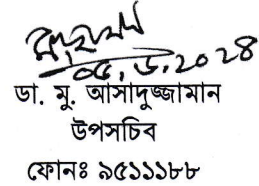 ০৫.৬.২০২৪
ডা. মু. আসাদুজ্জামান
উপসচিব
ফোনঃ ৯৫১১১৮৮